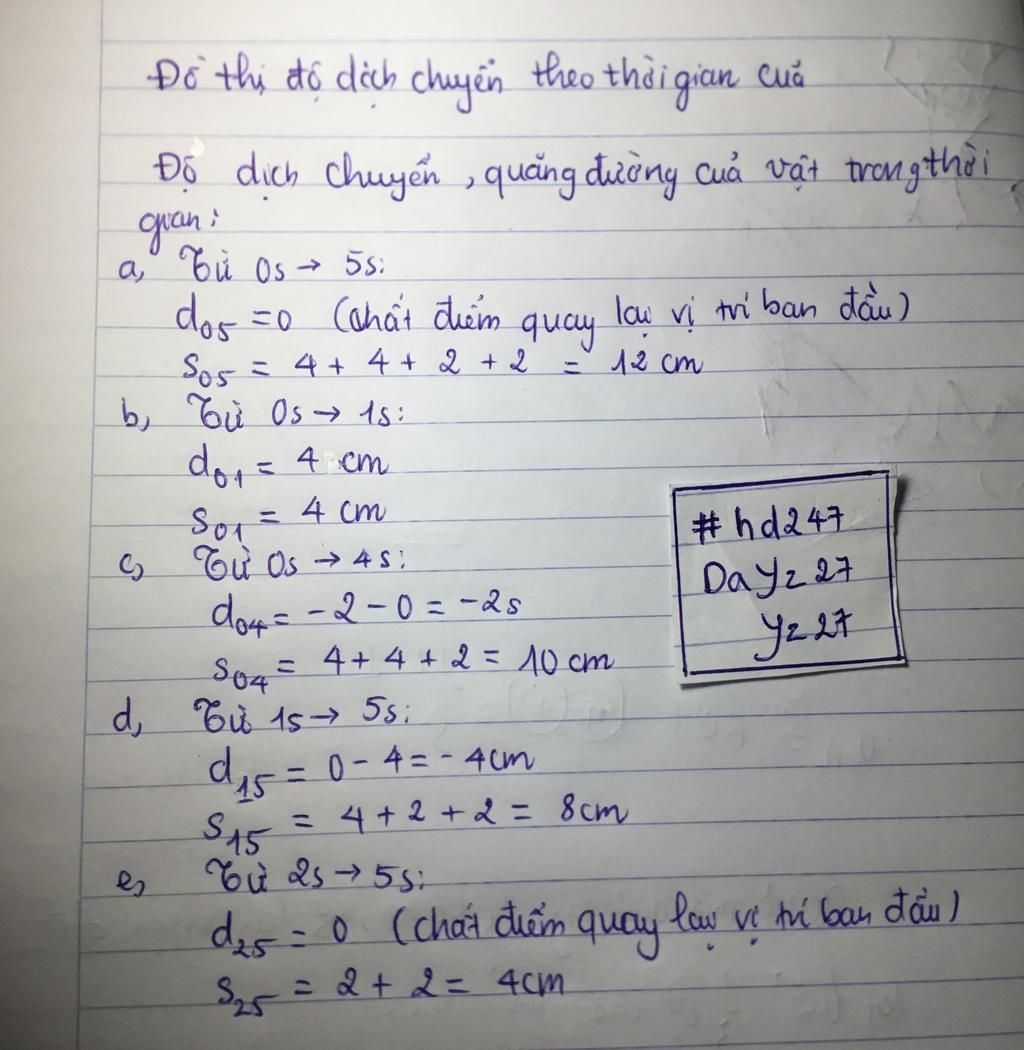 Đồ thị độ dịch chuyển theo thời gian của
Độ dịch chuyển, quãng đường của vật trong thời
gian:
a, Từ 0s → 5s:
d₀₅ = 0 (chất điểm quay lại vị trí ban đầu)
s₀₅ = 4 + 4 + 2 + 2 = 12 cm
b, Từ 0s → 1s:
d₀₁ = 4 cm
s₀₁ = 4 cm
c, Từ 0s → 4s:
d₀₄ = -2 - 0 = -2s
s₀₄ = 4 + 4 + 2 = 10 cm
d, Từ 1s → 5s:
d₁₅ = 0 - 4 = - 4cm
s₁₅ = 4 + 2 + 2 = 8cm
e, Từ 2s → 5s:
d₂₅ = 0 (chất điểm quay lại vị trí ban đầu)
s₂₅ = 2 + 2 = 4cm
#hd247
DaYz27
Yz27